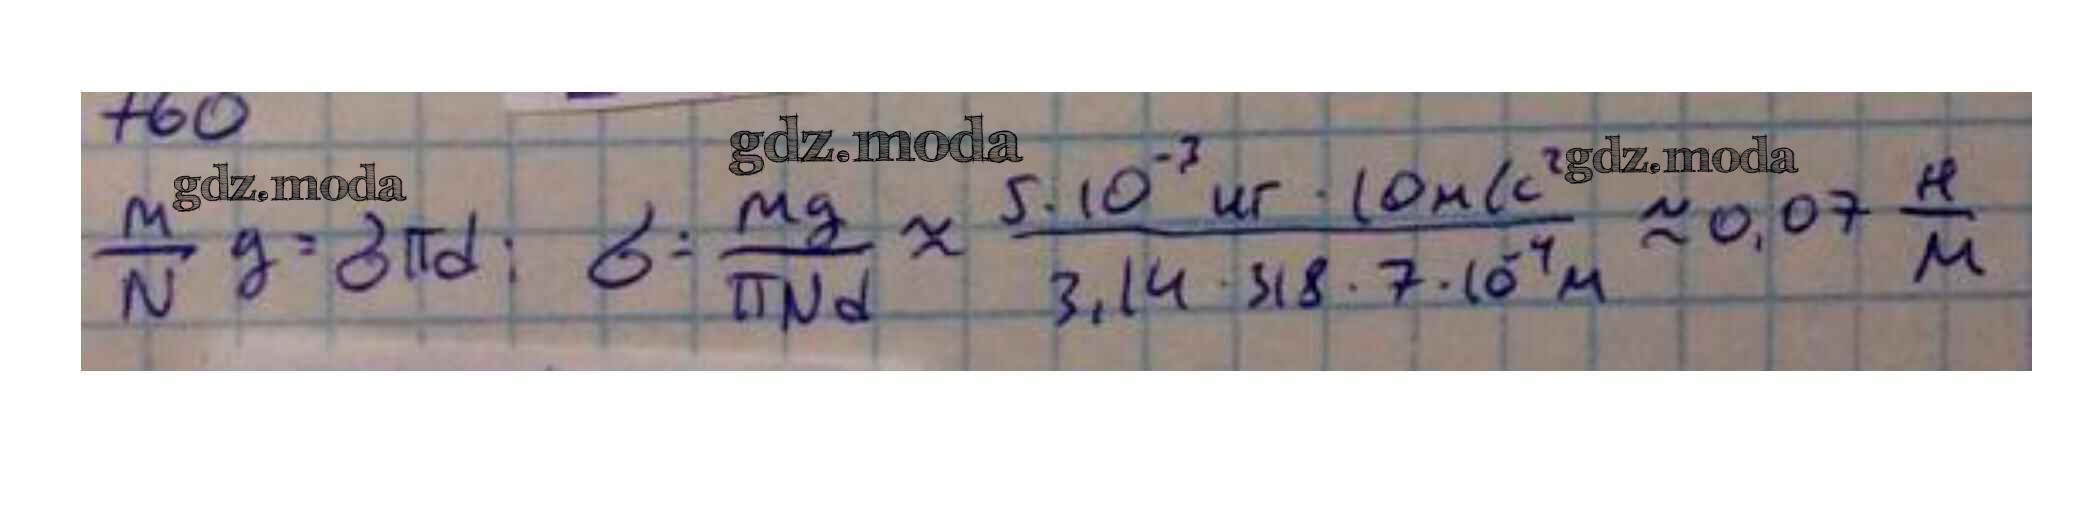 760
gdz.moda gdz.moda gdz.moda
M/N g = σπd; σ = Mg/πNd ≈ 5·10⁻³ кг · 10 м/с² / 3,14 · 318 · 7 · 10⁻⁴ м ≈ 0,07 Н/м